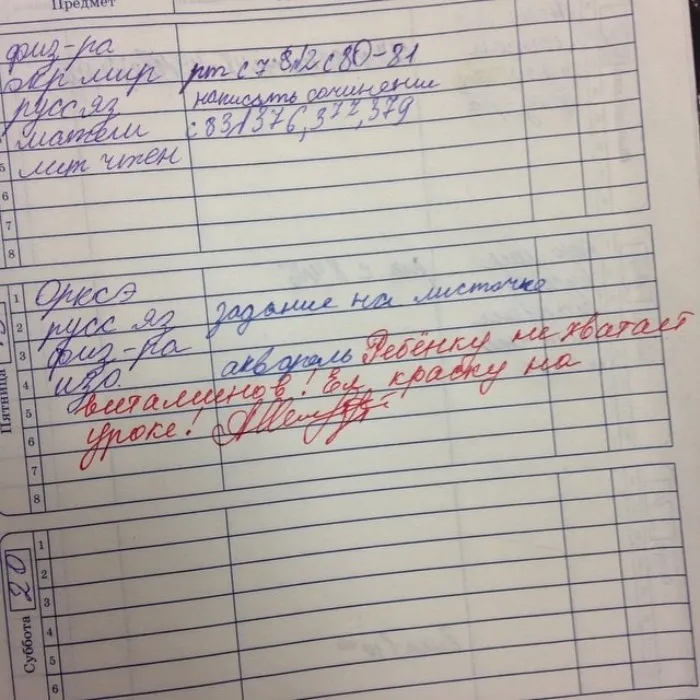 Предмет
физ-ра
окр мир рт с 78,12 с80-81
русс яз написать сочинение
матем с 83 1376, 377, 379
5 лит чтен
6
7
8
Пятница
1 ОРКСЭ
2 русс яз задание на листочке
3 физ-ра
4 изо. акварель Ребёнку не хватает
витаминов! Ел краску на
5 уроке!
6
7
8
Суббота 20
1
2
3
4
5
6